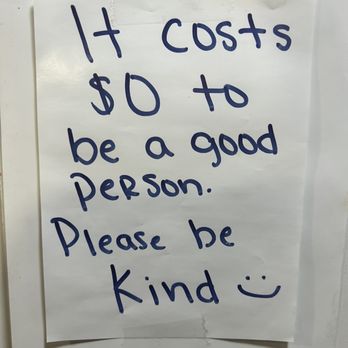 It costs
$0 to
be a good
person.
Please be
Kind :)